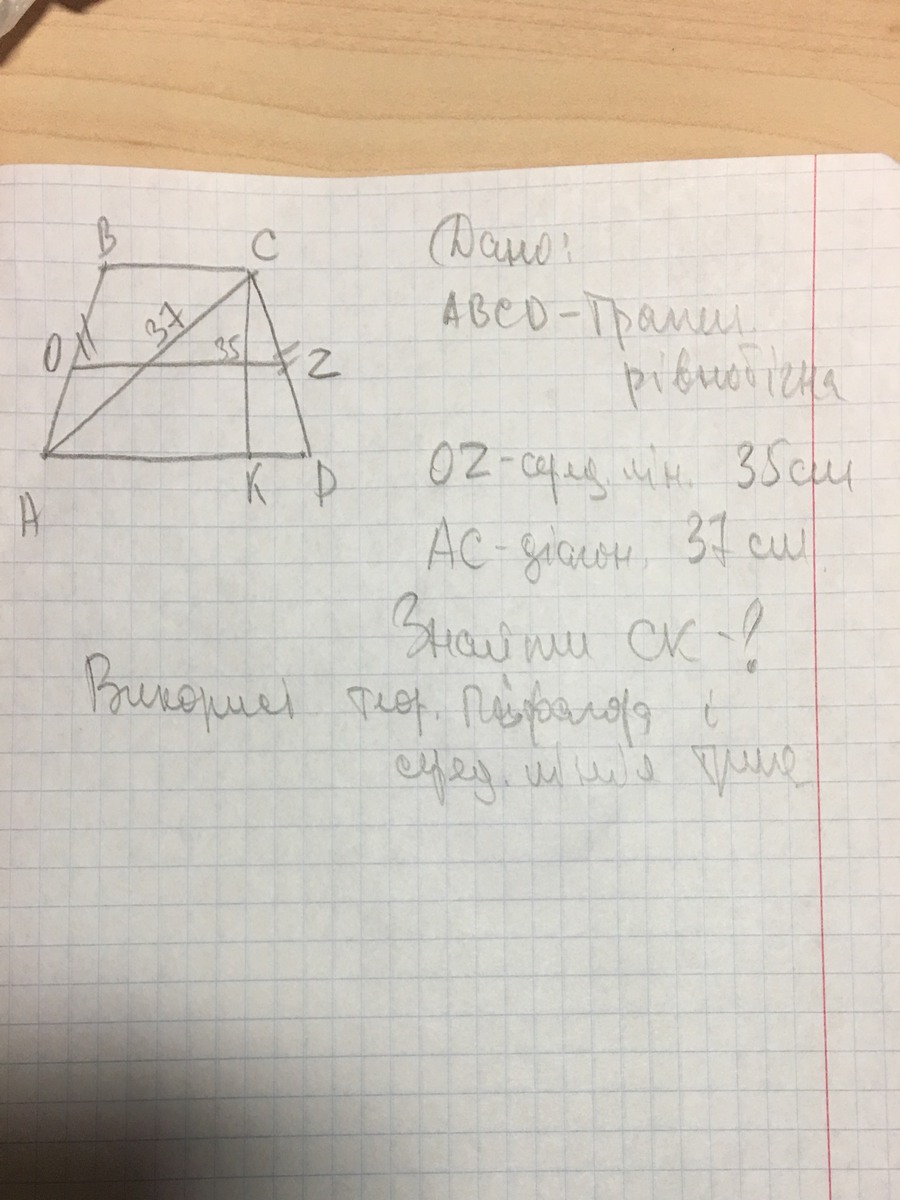 B
C
O
37
35
Z
A
K
D
Дано:
ABCD - Трапец.
рівнобічна
OZ - серед. лін. 35 см
AC - діагон. 37 см
Знайти CK - ?
Використ теор. Піфагора і
серед. лінія трапе